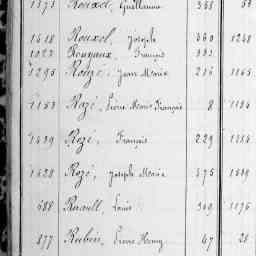 1373 Rouxel, Guillaume 368 59
1418 Rouxel, Joseph 560 1248
1023 Rouyaux, François 332
1295 Rouzé, Jean Marie 216 1165
1153 Rozé, Pierre Marie François 8 1184
1439 Rozé, Francis 229 1384
1428 Rozé, Joseph Marie 575 1589
688 Ruault, Louis 349 1176
877 Rubin, Pierre Henry 47 28